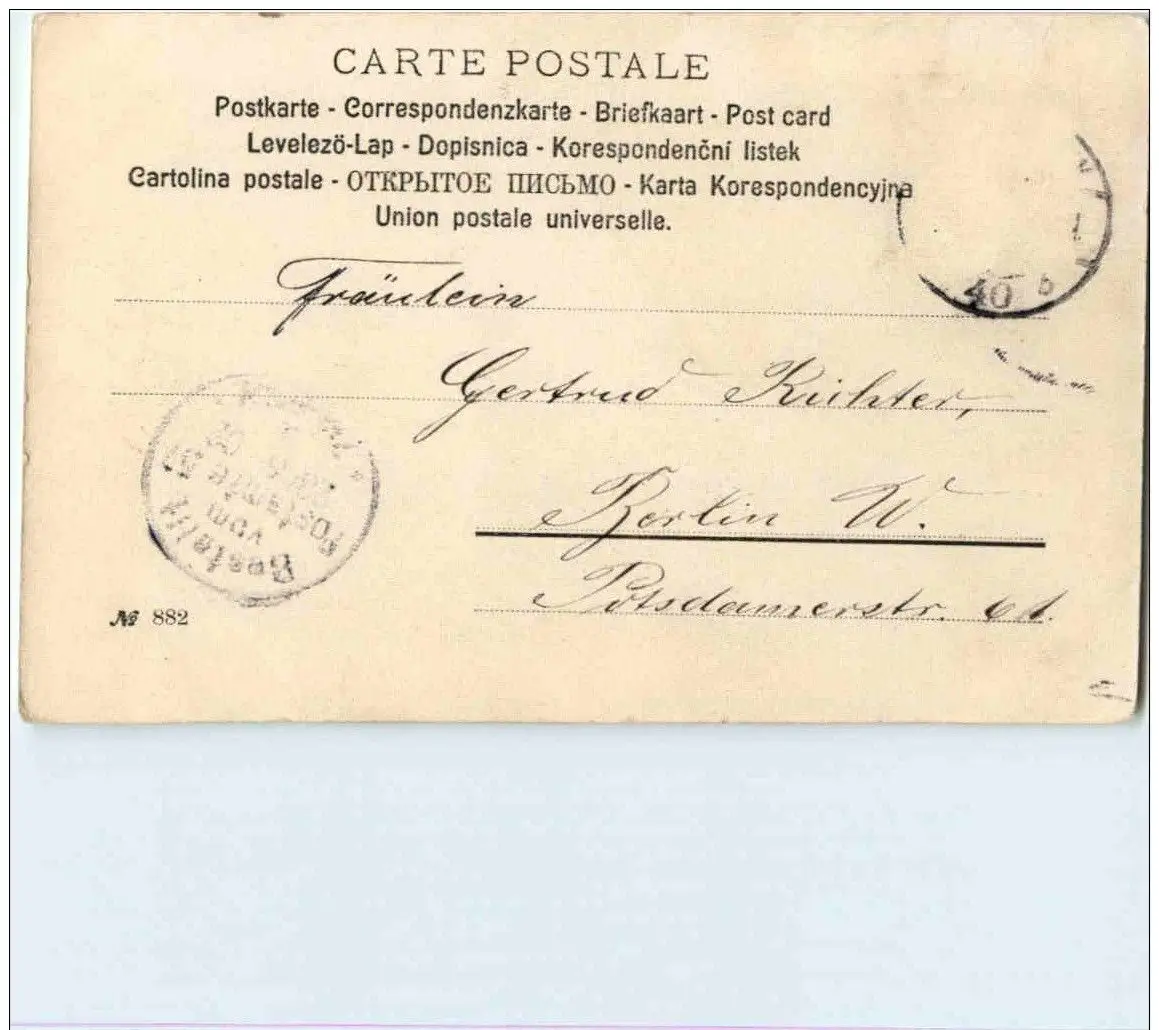 CARTE POSTALE
Postkarte - Correspondenzkarte - Briefkaart - Post card
Levelezö-Lap - Dopisnica - Korespondenční listek
Cartolina postale - ОТКРЫТОЕ ПИСЬМО - Karta Korespondencyjna
Union postale universelle.
40 b
Fräulein
Gertrud Richter,
Berlin W.
Potsdamerstr. 61.
Bestellt
vom
Postamte
№ 882